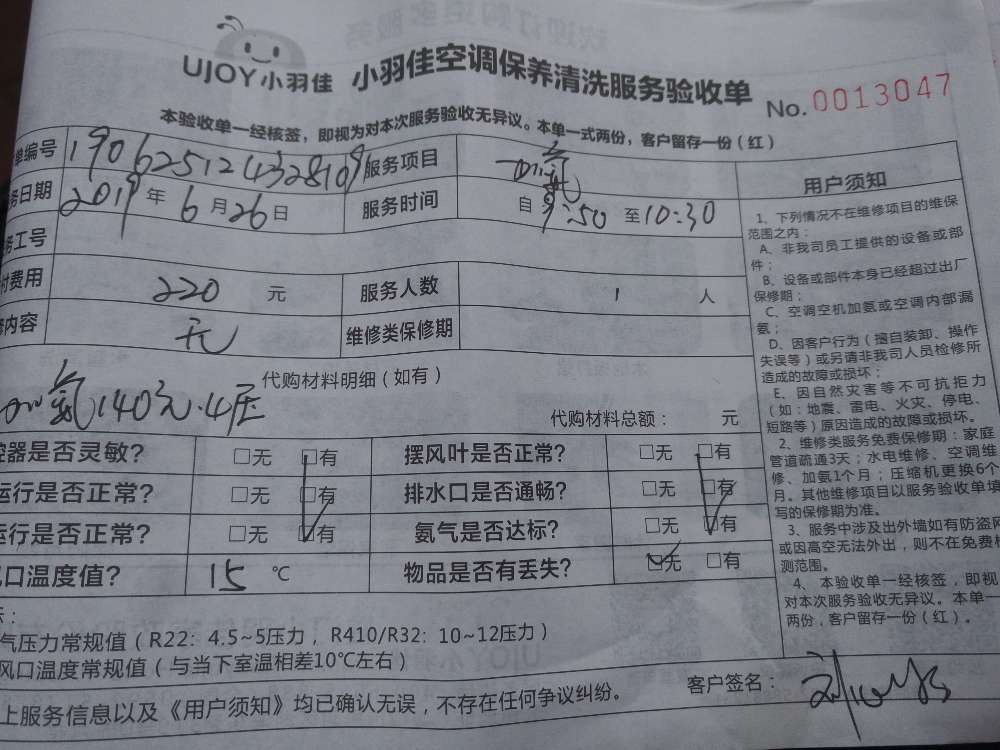 UJOY小羽佳 小羽佳空调保养清洗服务验收单 No. 0013047
本验收单一经核签，即视为对本次服务验收无异议。本单一式两份，客户留存一份（红）
单编号 190625124328109 服务项目 加氨
务日期 2019年6月26日 服务时间 自9:50至10:30
务工号
付费用 220 元 服务人数 1 人
修内容 无 维修类保修期
代购材料明细（如有）
加氨140元.4压
代购材料总额： 元
控器是否灵敏? □无 □有 摆风叶是否正常? □无 □有
运行是否正常? □无 □有 排水口是否通畅? □无 □有
运行是否正常? □无 □有 氨气是否达标? □无 □有
风口温度值? 15 ℃ 物品是否有丢失? □无 □有
气压力常规值（R22：4.5~5压力，R410/R32：10~12压力）
风口温度常规值（与当下室温相差10℃左右）
上服务信息以及《用户须知》均已确认无误，不存在任何争议纠纷。 客户签名：
用户须知
1、下列情况不在维修项目的维保
范围之内：
A、非我司员工提供的设备或部
件；
B、设备或部件本身已经超过出厂
保修期；
C、空调空机加氨或空调内部漏
氨；
D、因客户行为（擅自装卸、操作
失误等）或另请非我司人员检修所
造成的故障或损坏；
E、因自然灾害等不可抗拒力
（如：地震、雷电、火灾、停电、
短路等）原因造成的故障或损坏。
2、维修类服务免费保修期：家庭
管道疏通3天；水电维修、空调维
修、加氨1个月；压缩机更换6个
月。其他维修项目以服务验收单填
写的保修期为准。
3、服务中涉及出外墙如有防盗网
或因高空无法外出，则不在免费检
测范围。
4、本验收单一经核签，即视
对本次服务验收无异议。本单一
两份，客户留存一份（红）。